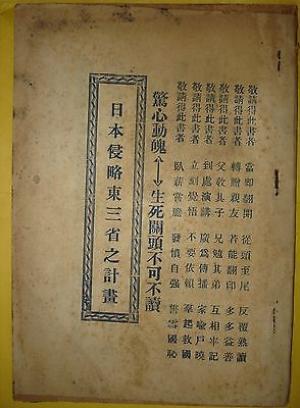 敬請得此書者 當即翻開 從頭至尾 反覆熟讀
敬請得此書者 轉贈親友 若能翻印 多多益善
敬請得此書者 父教其子 兄勉其弟 互相牢記
敬請得此書者 到處演講 廣為傳播 家喻戶曉
敬請得此書者 立刻覺悟 不要依賴 羣起救國
敬請得此書者 臥薪嘗膽 發憤自强 誓雪國恥
驚心動魄←→生死關頭不可不讀
日本侵略東三省之計畫